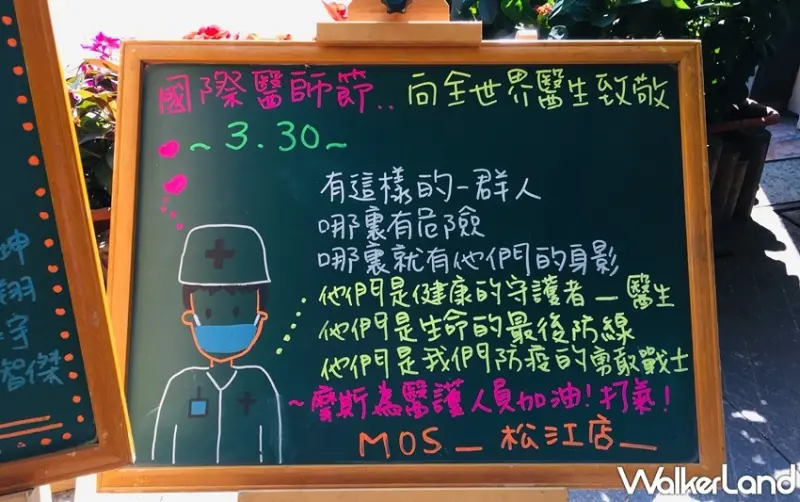 國際醫師節..向全世界醫生致敬
~3.30~
有這樣的一群人
哪裏有危險
哪裏就有他們的身影
他們是健康的守護者—醫生
他們是生命的最後防線
他們是我們防疫的勇敢戰士
~摩斯為醫護人員加油!打氣!
MOS_松江店_
坤
翔
宇
智傑
WALKERLAND